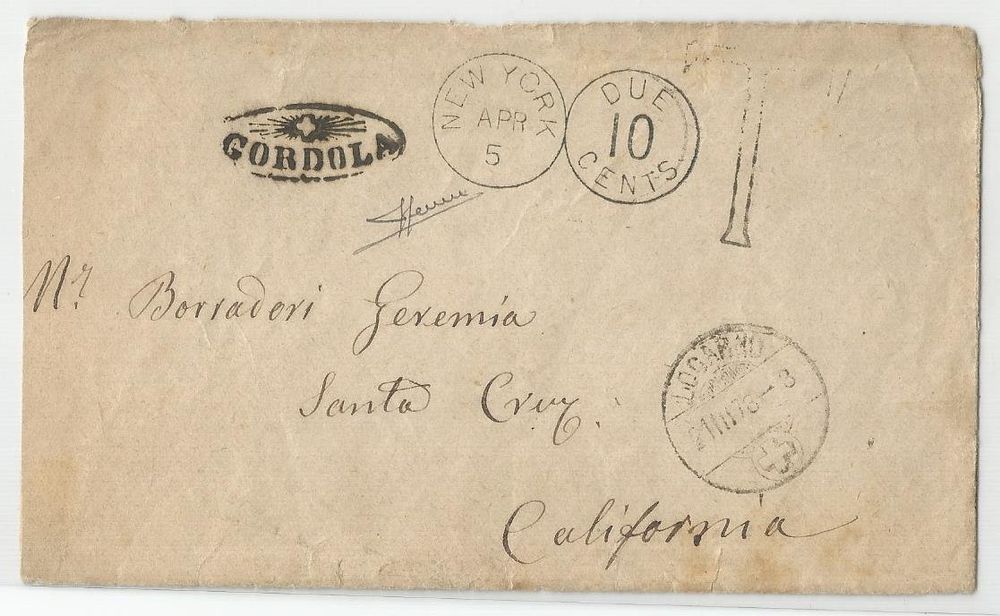 GORDOLA
NEW YORK
APR
5
DUE
10
CENTS
T
Mr. Borradori Geremia
Santa Cruz.
California
LOCARNO
21 III 78 – 8